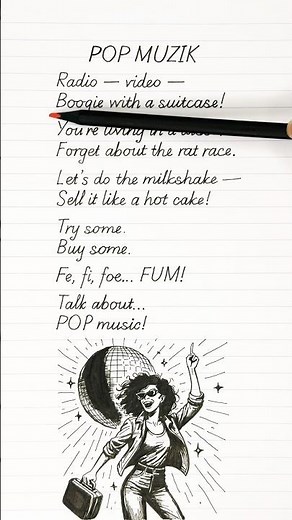 POP MUZIK
Radio — video —
Boogie with a suitcase!
You're living in a
Forget about the rat race.
Let's do the milkshake —
Sell it like a hot cake!
Try some.
Buy some.
Fe, fi, foe... FUM!
Talk about...
POP music!